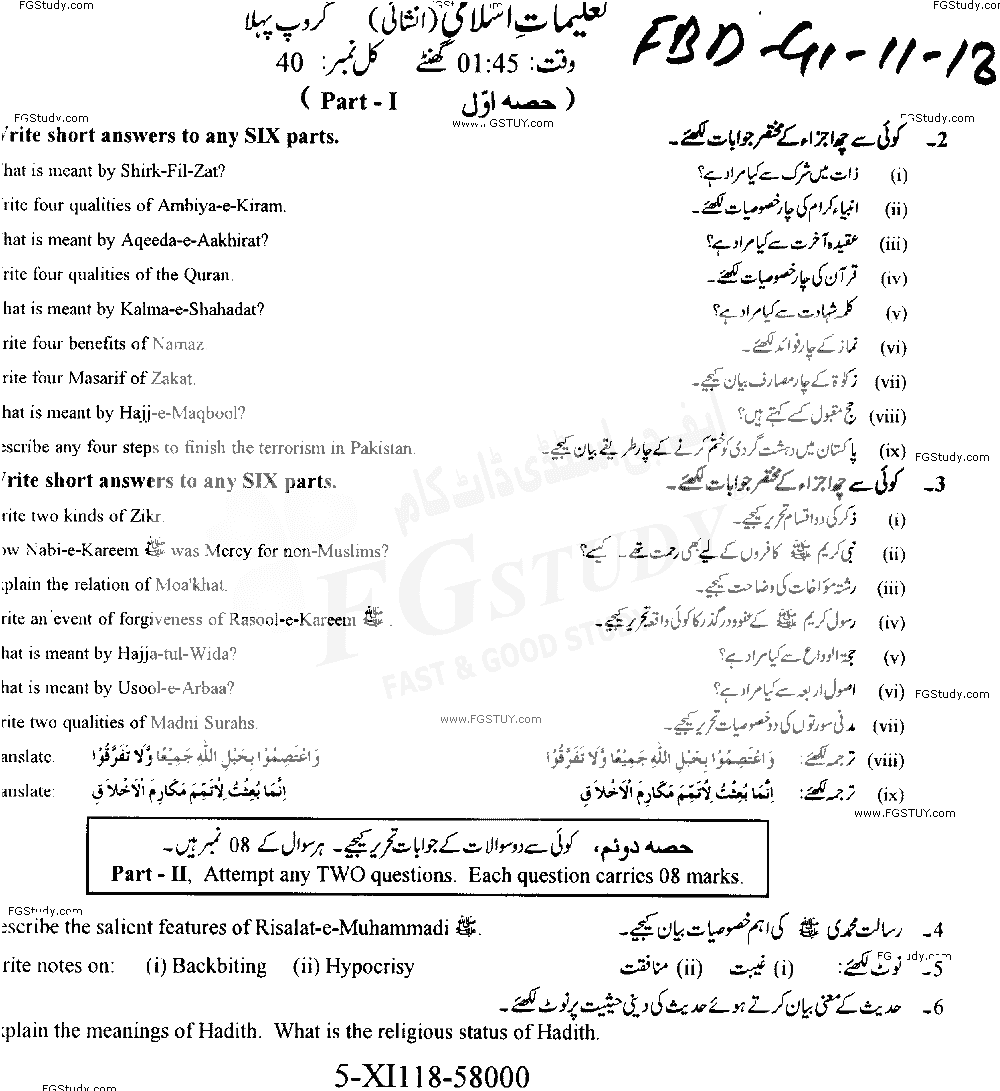 FGStudy.com FGStudy.com FGStudy.com
تعلیماتِ اسلامی (انشائی) گروپ پہلا
FBD-G1-11-18
وقت: 01:45 گھنٹے کل نمبر: 40
( Part - I حصہ اوّل )
FGStudy.com www.FGSTUY.com FGStudy.com
rite short answers to any SIX parts. 2۔ کوئی سے چھ اجزاء کے مختصر جوابات لکھئے۔
hat is meant by Shirk-Fil-Zat? (i) ذات میں شرک سے کیا مراد ہے؟
rite four qualities of Ambiya-e-Kiram. (ii) انبیاء کرام کی چار خصوصیات لکھئے۔
hat is meant by Aqeeda-e-Aakhirat? (iii) عقیدہ آخرت سے کیا مراد ہے؟
rite four qualities of the Quran. (iv) قرآن کی چار خصوصیات لکھئے۔
hat is meant by Kalma-e-Shahadat? (v) کلمہ شہادت سے کیا مراد ہے؟
rite four benefits of Namaz (vi) نماز کے چار فوائد لکھئے۔
rite four Masarif of Zakat. (vii) زکوٰۃ کے چار مصارف بیان کیجیے۔
hat is meant by Hajj-e-Maqbool? (viii) حج مقبول کسے کہتے ہیں؟
escribe any four steps to finish the terrorism in Pakistan. (ix) پاکستان میں دہشت گردی کو ختم کرنے کے چار طریقے بیان کیجیے۔
FGStudy.com
rite short answers to any SIX parts. 3۔ کوئی سے چھ اجزاء کے مختصر جوابات لکھئے۔
ایف جی اسٹڈی ڈاٹ کام
rite two kinds of Zikr. (i) ذکر کی دو اقسام تحریر کیجیے۔
ow Nabi-e-Kareem ﷺ was Mercy for non-Muslims? (ii) نبی کریم ﷺ کافروں کے لیے بھی رحمت تھے۔ کیسے؟
FGSTUDY
xplain the relation of Moa'khat. (iii) رشتہ مؤاخات کی وضاحت کیجیے۔
rite an event of forgiveness of Rasool-e-Kareem ﷺ. (iv) رسول کریم ﷺ کے عفو و درگذر کا کوئی واقعہ تحریر کیجیے۔
hat is meant by Hajja-tul-Wida? (v) حجۃ الوداع سے کیا مراد ہے؟
FAST & GOOD STUDY
hat is meant by Usool-e-Arbaa? (vi) اصول اربعہ سے کیا مراد ہے؟
FGStudy.com
rite two qualities of Madni Surahs. (vii) مدنی سورتوں کی دو خصوصیات تحریر کیجیے۔
www.FGSTUY.com
anslate. وَاعْتَصِمُوْا بِحَبْلِ اللّٰهِ جَمِيْعًا وَّلَا تَفَرَّقُوْا (viii) ترجمہ لکھئے: وَاعْتَصِمُوْا بِحَبْلِ اللّٰهِ جَمِيْعًا وَّلَا تَفَرَّقُوْا
anslate: اِنَّمَا بُعِثْتُ لِاُتَمِّمَ مَكَارِمَ الْاَخْلَاقِ (ix) ترجمہ لکھئے: اِنَّمَا بُعِثْتُ لِاُتَمِّمَ مَكَارِمَ الْاَخْلَاقِ
www.FGSTUY.com
حصہ دوئم، کوئی سے دو سوالات کے جوابات تحریر کیجیے۔ ہر سوال کے 08 نمبر ہیں۔
Part - II, Attempt any TWO questions. Each question carries 08 marks.
FGStudy.com
escribe the salient features of Risalat-e-Muhammadi ﷺ. 4۔ رسالت محمدی ﷺ کی اہم خصوصیات بیان کیجیے۔
rite notes on: (i) Backbiting (ii) Hypocrisy 5۔ نوٹ لکھئے: (i) غیبت (ii) منافقت
FGStudy.com
6۔ حدیث کے معنی بیان کرتے ہوئے حدیث کی دینی حیثیت پر نوٹ لکھئے۔
xplain the meanings of Hadith. What is the religious status of Hadith.
5-XI118-58000
FGStudy.com FGStudy.com